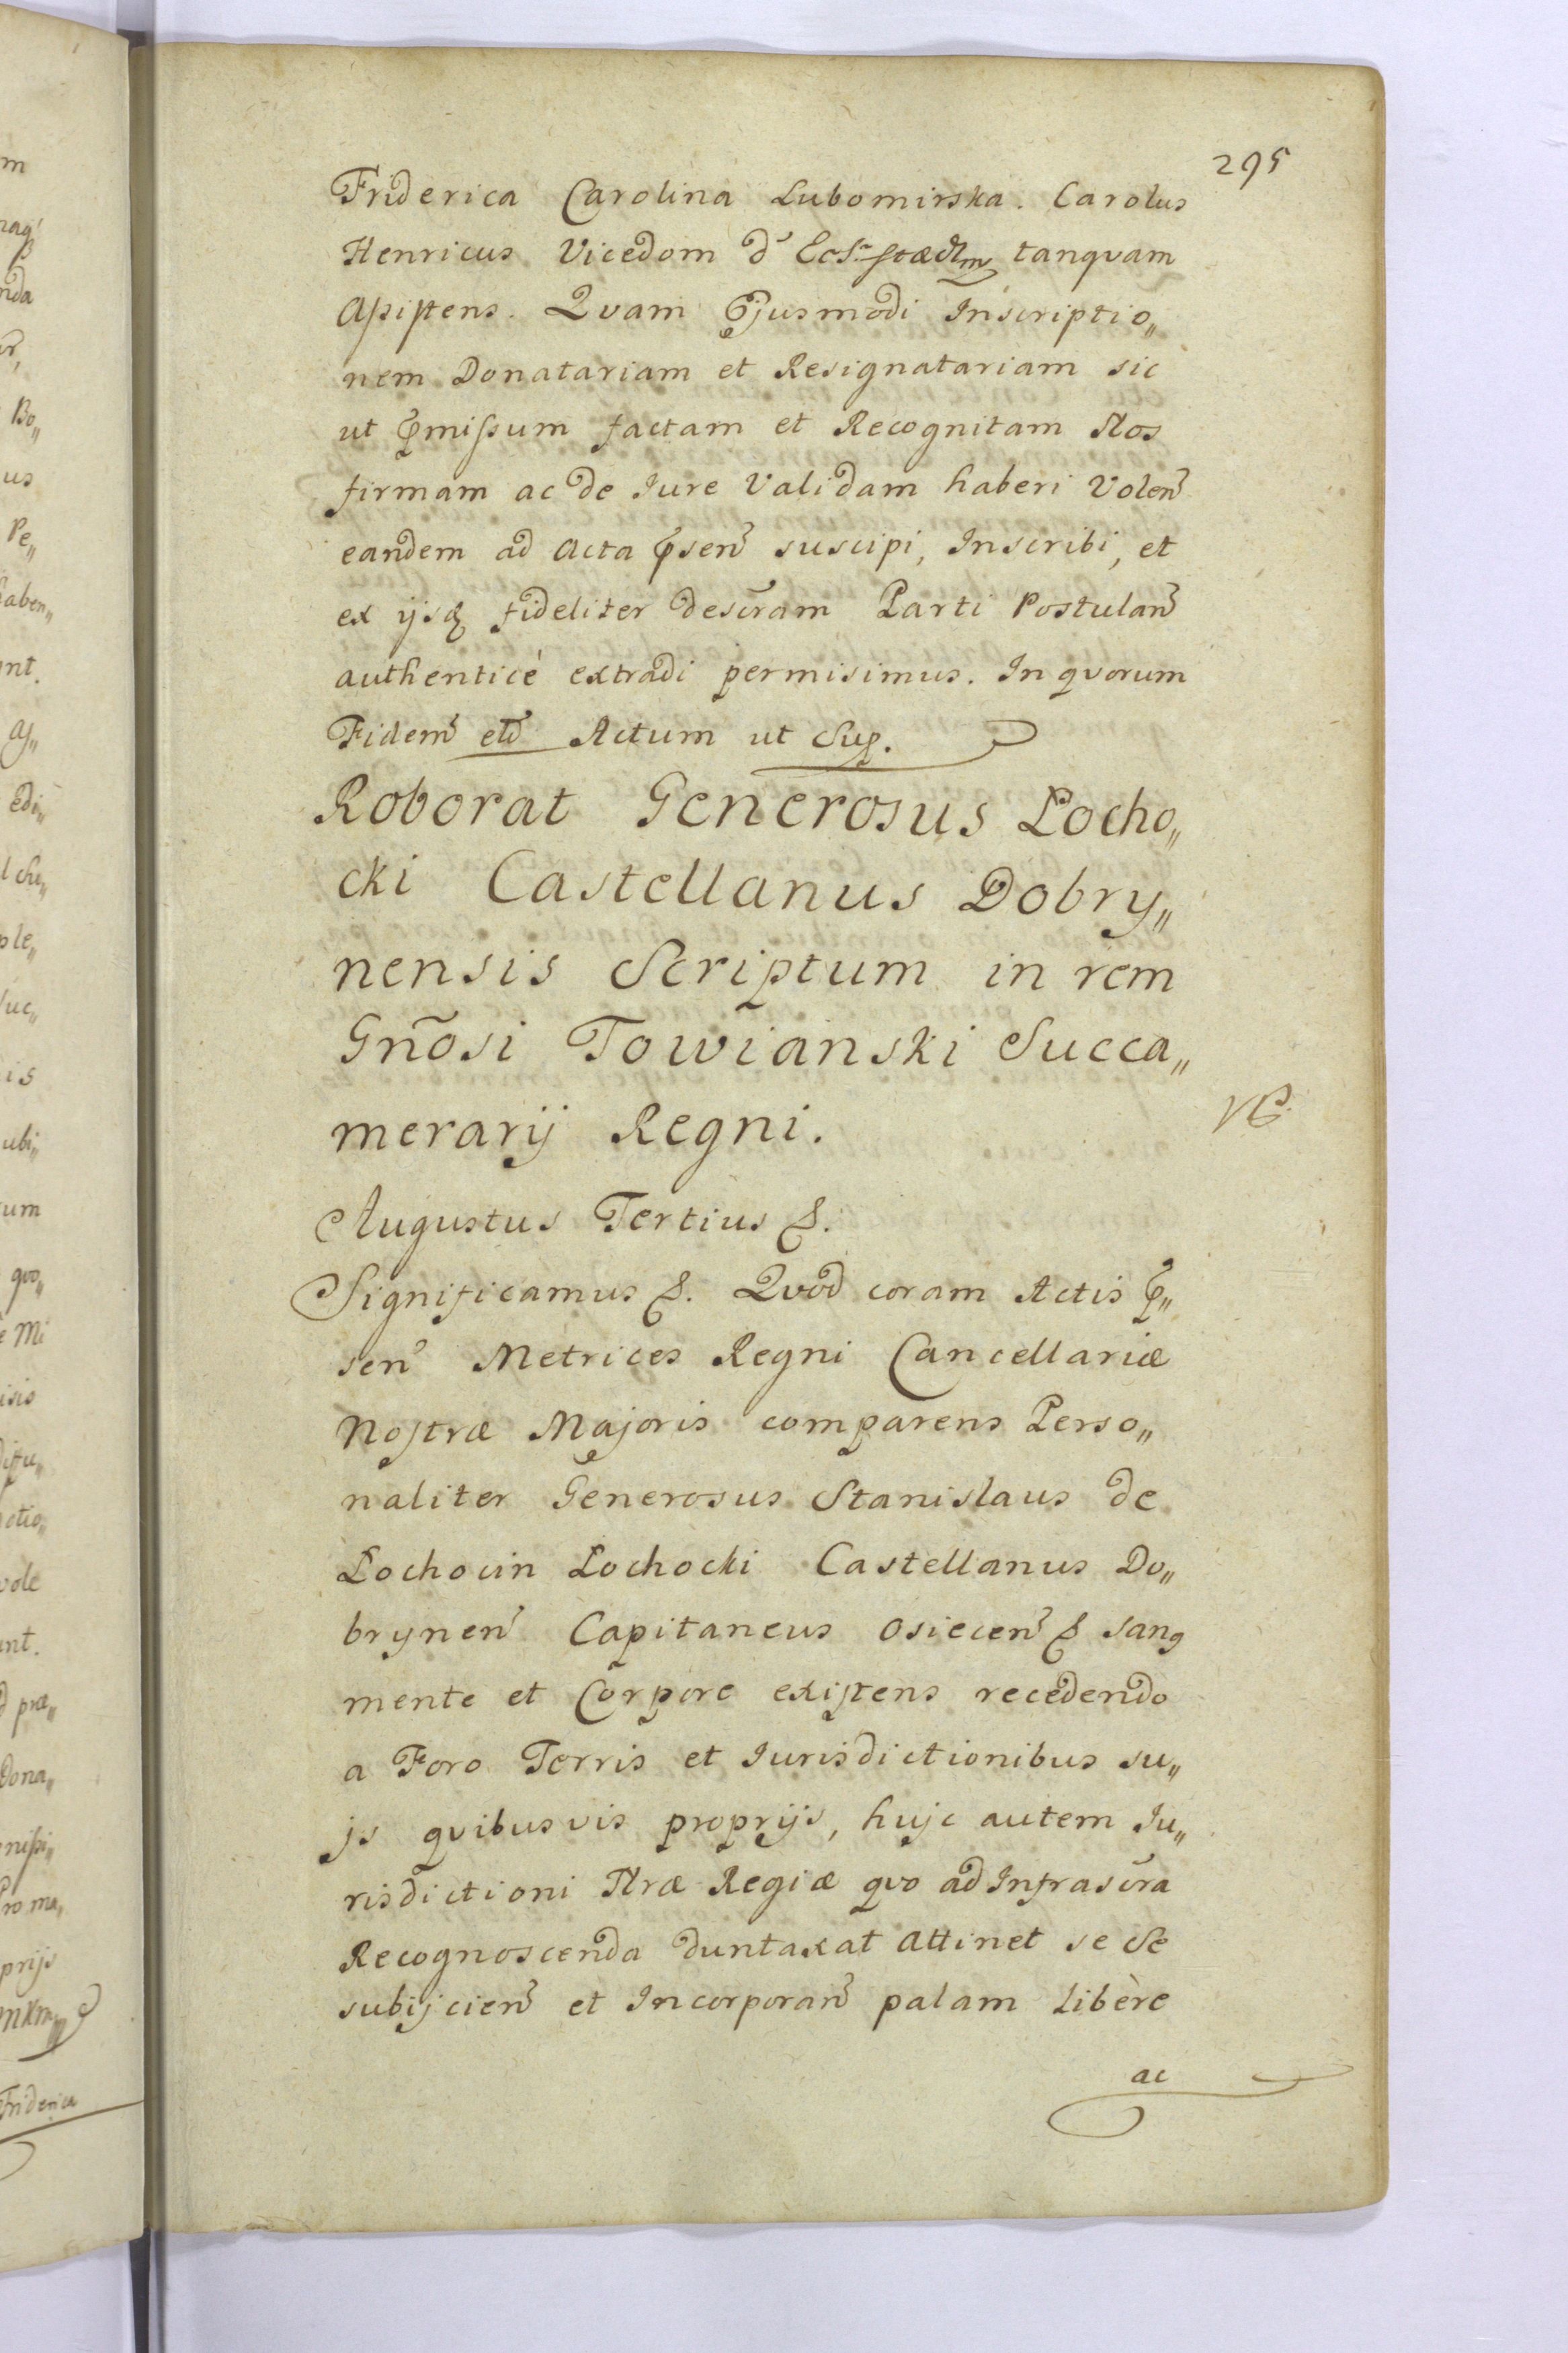 295
Friderica Carolina Lubomirska. Carolus
Henricus Vicedom d' Eckstaedtm̄ tanqvam
Assistens. Qvam Ejusmodi Inscriptio„
nem Donatariam et Resignatariam sic
ut p̄missum factam et Recognitam Nos
firmam ac de Jure Validam haberi Volen̄
eandem ad Acta p̄sen̄ suscipi, Inscribi, et
ex ijsq̨ fideliter descr̄am Parti Postulan̄
authenticè extradi permisimus. In qvorum
Fidem̄ etc̄ Actum ut Sup̱.
Roborat Generosus Łocho„
cki Castellanus Dobry„
nensis Scriptum in rem
Gnōsi Towianski Succa„
merarij Regni.
Augustus Tertius &.
Significamus &. Qvod coram Actis p̄„
sen̄ Metrices Regni Cancellariæ
Nostræ Majoris comparens Perso„
naliter Generosus Stanislaus de
Łochocin Łochocki Castellanus Do„
brynen̄ Capitaneus Osiecen̄ & sang
mente et Corpore existens recedendo
a Foro Terris et Jurisdictionibus su„
js qvibusvis proprijs, hujc autem Ju„
risdictioni Nræ Regiæ qvo ad Infrascr̄a
Recognoscenda duntaxat attinet se Se
subijcien̄ et Incorporan̄ palam Libère
ac